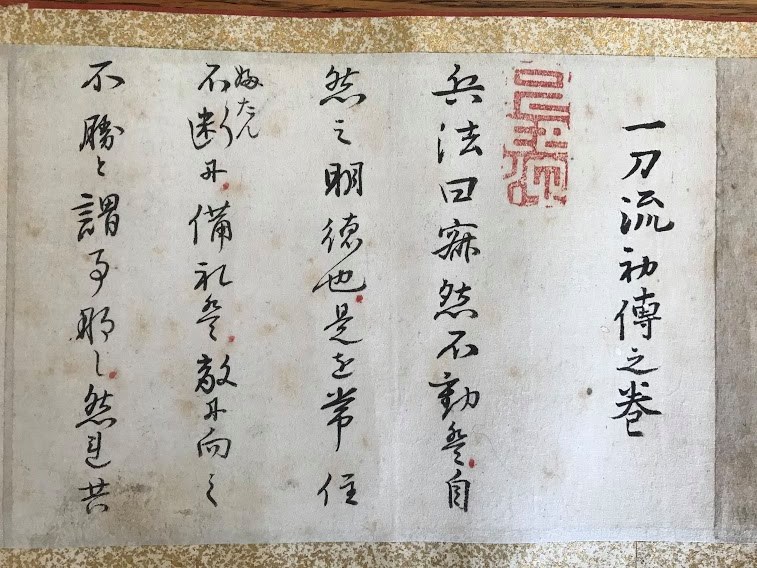 一刀流初傳之巻
兵法曰寂然不動是自
然之明徳也是を常住
不断尓備礼是敵尓向て
ふだん
不勝と謂事那し然連共